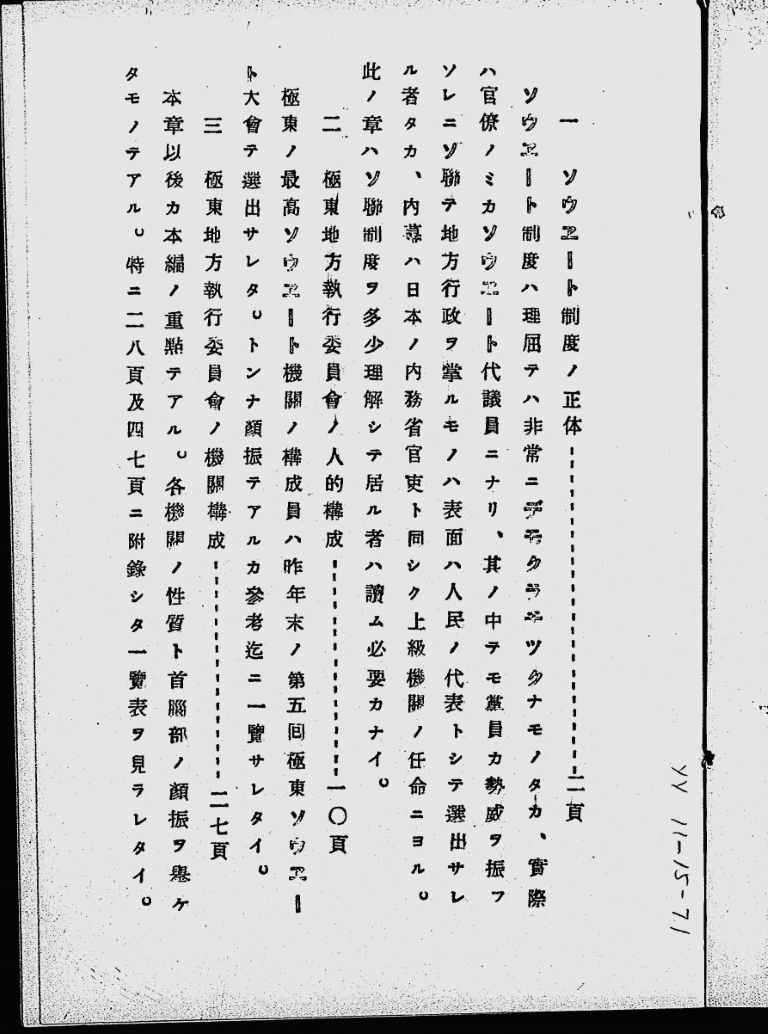 一　ソウエート制度ノ正体…………二頁
ソウエート制度ハ理屈テハ非常ニデモクラチツクナモノタカ、實際
ハ官僚ノミカソウエート代議員ニナリ、其ノ中テモ黨員カ勢威ヲ振フ
ソレニソ聯テ地方行政ヲ掌ルモノハ表面ハ人民ノ代表トシテ選出サレ
ル者タカ、内幕ハ日本ノ内務省官吏ト同シク上級機關ノ任命ニヨル。
此ノ章ハソ聯制度ヲ多少理解シテ居ル者ハ讀ム必要カナイ。
二　極東地方執行委員會ノ人的構成…………一〇頁
極東ノ最高ソウエート機關ノ構成員ハ昨年末ノ第五回極東ソウエー
ト大會テ選出サレタ。トンナ顔振テアルカ參考迄ニ一覽サレタイ。
三　極東地方執行委員會ノ機關構成…………二七頁
本章以後カ本編ノ重點テアル。各機關ノ性質ト首腦部ノ顔振ヲ擧ケ
タモノテアル。特ニ二八頁及四七頁ニ附錄シタ一覽表ヲ見ラレタイ。
YY 11-15-71